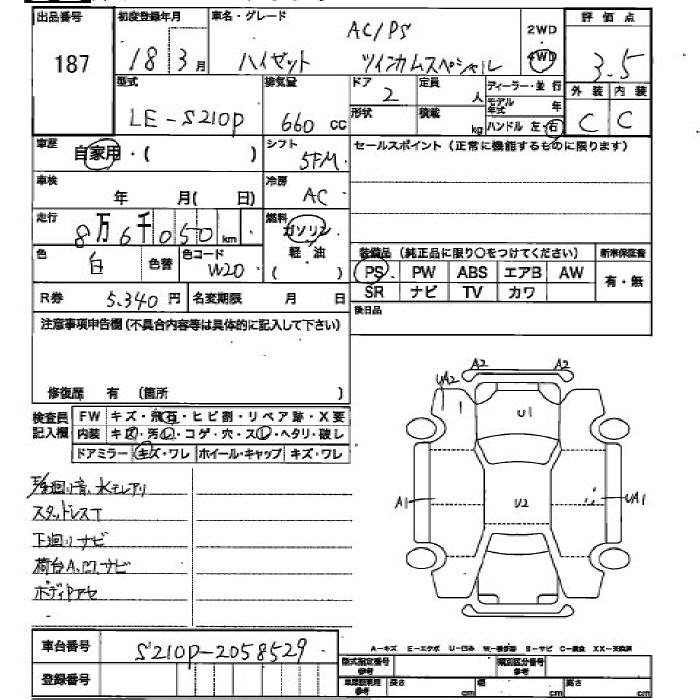 出品番号 187
初度登録年月 18 3月
車名・グレード AC/PS
ハイゼット ツインカムスペシャル
2WD 4WD
評価点 3.5
外装 C 内装 C
型式 LE-S210P
排気量 660 cc
ドア 2
形状
定員 人
積載 kg
ディーラー・並行
モデル年式 年
ハンドル 左・右
車歴 自家用・( )
シフト 5FM
セールスポイント(正常に機能するものに限ります)
車検 年 月( 日)
冷房 AC
走行 8万6千050 km
燃料 ガソリン
軽油
( )
色 白 色替
色コード W20
装備品(純正品に限り○をつけてください) 新車保証書
PS PW ABS エアB AW 有・無
SR ナビ TV カワ
R券 5.340円 名変期限 月 日
後日品
注意事項申告欄(不具合内容等は具体的に記入して下さい)
修復歴 有 (箇所 )
検査員記入欄
FW キズ・飛石・ヒビ割・リペア跡・X要
内装 キズ・汚レ・コゲ・穴・スレ・ヘタリ・破レ
ドアミラー キズ・ワレ ホイール・キャップ キズ・ワレ
A2 A2
UA2 U1
A1 U2 UA1
廻り音、水モレアリ
スタッドレスT
下廻りサビ
荷台A、凹、サビ
ボディPアセ
車台番号 S210P-2058529
登録番号
A-キズ E-エクボ U-凹み W-補修跡 S-サビ C-腐食 XX-交換済
型式指定番号 参考
類別区分番号 参考
車庫証明用 参考 長さ cm 幅 cm 高さ cm